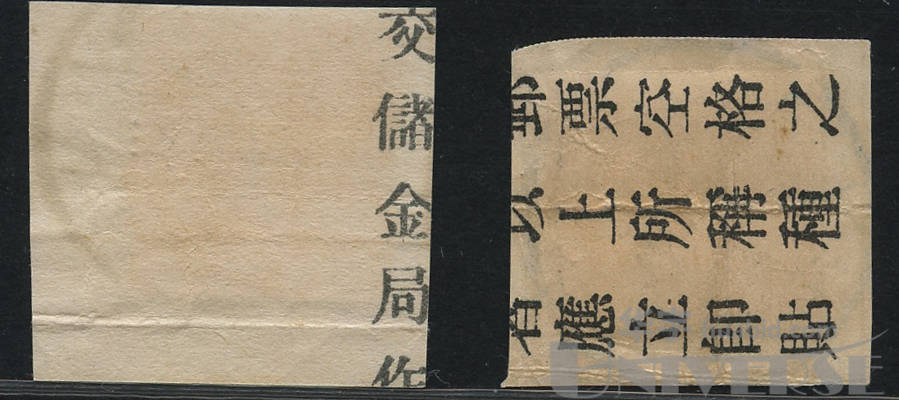 交儲金局作
郵票空格之
以上所稱種
應立即貼
UNIVERSE